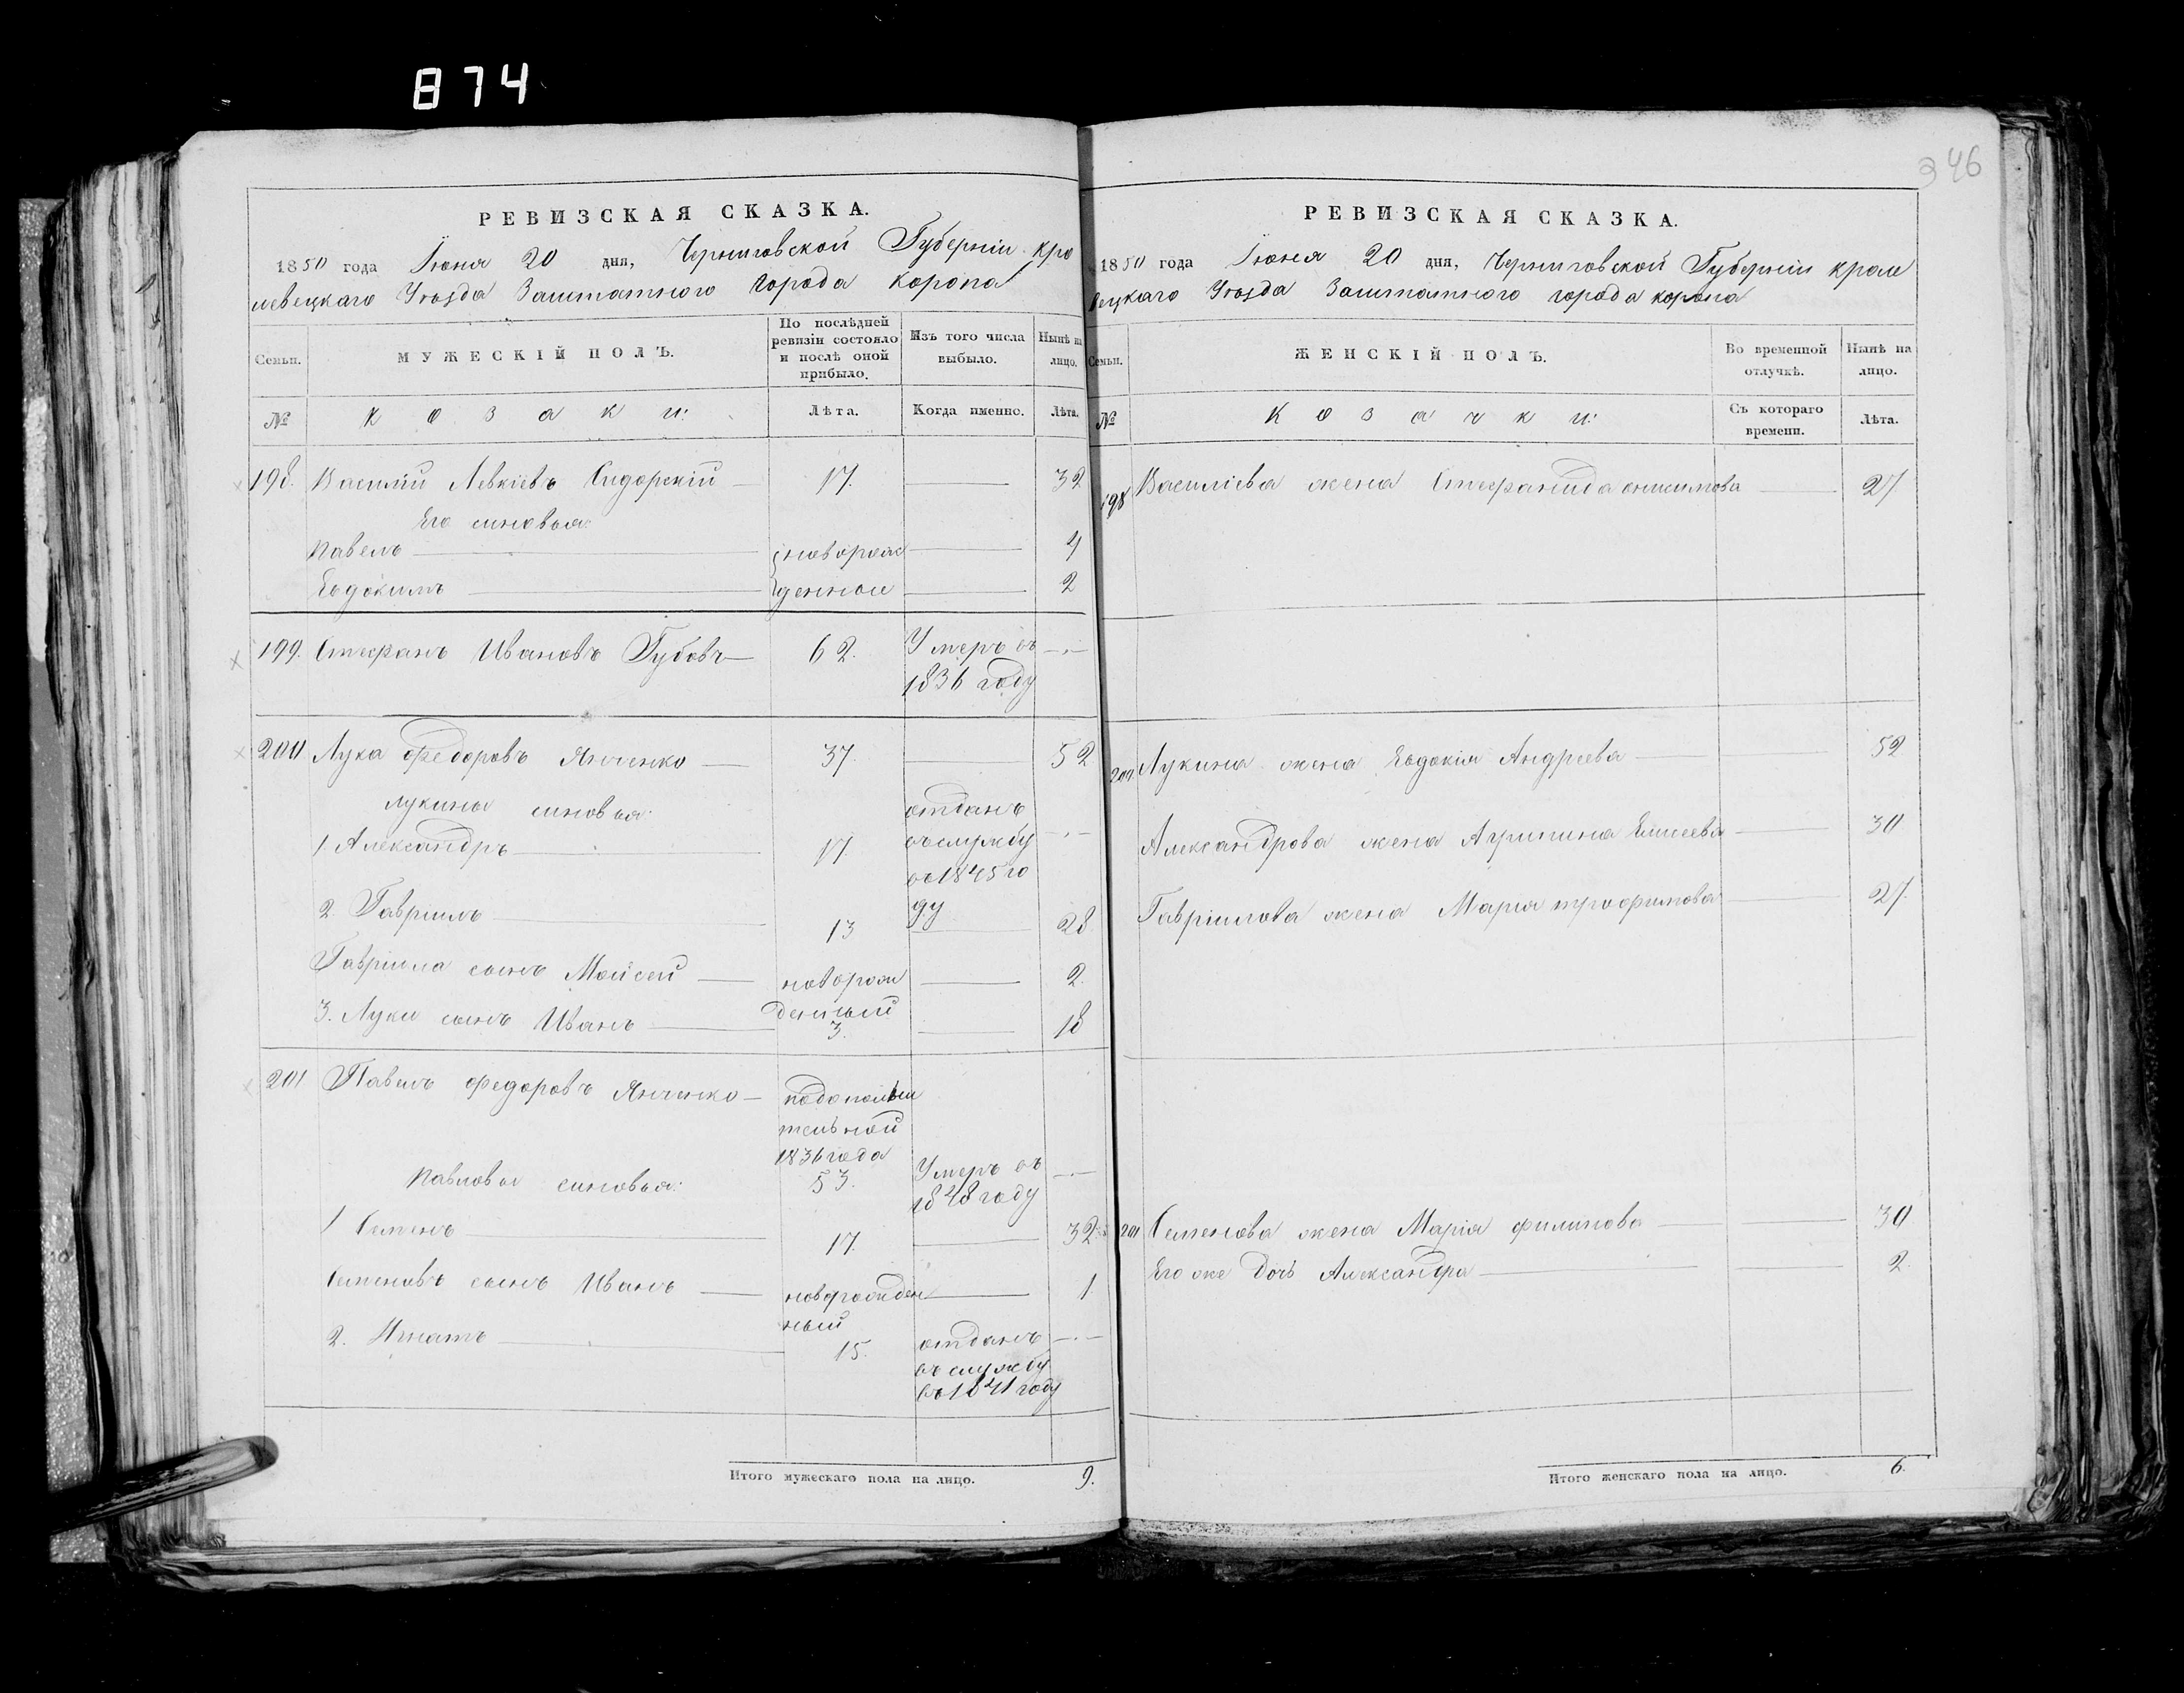 874
РЕВИЗСКАЯ СКАЗКА.
1850 года Іюня 20 дня, Черниговской Губерніи кро
левецкаго Уѣзда Заштатного города Коропа
Семьи. МУЖЕСКІЙ ПОЛЪ. По послѣдней ревизіи состояло и послѣ оной прибыло. Изъ того числа выбыло. Нынѣ на лицо.
№ Козаки: Лѣта. Когда именно. Лѣта.
198. Василій Левкіевъ Сидорскій 17. 32
Его синовья:
Павелъ новорож 4
Евдокимъ денные 2
199. Стефанъ Ивановъ Губовъ 62. Умеръ въ
1836 году
200 Лука Федоровъ Янченко 37. 52
Лукины синовья: отданъ
1. Александръ 17. въ службу
въ 1845 го
2. Гавріилъ 13 ду 28
Гавріила сынъ Мойсей новорож 2.
денный
3. Луки сынъ Иванъ 3. 18
201 Павелъ Федоровъ Янченко подополни
тельной
1836 года
Павловы синовья: 53. Умеръ въ
1848 году
1 Семенъ 17. 32
Семеновъ сынъ Иванъ новорожден 1
ный
2. Игнатъ 15. отданъ
въ службу
въ 1841 году
Итого мужескаго пола на лицо. 9.
346
РЕВИЗСКАЯ СКАЗКА.
1850 года Іюня 20 дня, Черниговской Губерніи крале
вецкаго Уѣзда Заштатного города Коропа
Семьи. ЖЕНСКІЙ ПОЛЪ. Во временной отлучкѣ. Нынѣ на лицо.
№ Козачки: Съ котораго времени. Лѣта.
198 Василіева жена Стефанида Онисимова 27
200 Лукина жена Евдокія Андреева 52
Александрова жена Агрипина Елисеева 30
Гавріилова жена Марія Трофимова 27.
201 Семенова жена Марія Филипова 30
Его же дочь Александра 2.
Итого женскаго пола на лицо. 6.